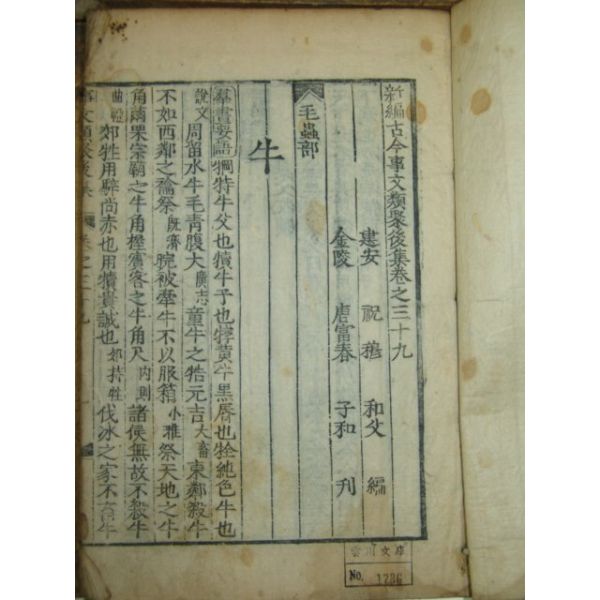 新編古今事文類聚後集卷之三十九
建安 祝穆 和父 編
金陵 唐富春 子和 刊
毛蟲部
牛
羣書要語犅特牛父也犢牛子也犉黃牛黑唇也牷純色牛也
說文周留水牛毛青腹大廣志童牛之牿元吉大畜東鄰殺牛
不如西鄰之禴祭既濟睆彼牽牛不以服箱小雅祭天地之牛
角繭栗宗廟之牛角握賓客之牛角尺內則諸侯無故不殺牛
曲禮郊牲用騂尚赤也用犢貴誠也郊特牲伐冰之家不畜牛
文類聚後集 卷之三十九
雲川文庫
No. 1286